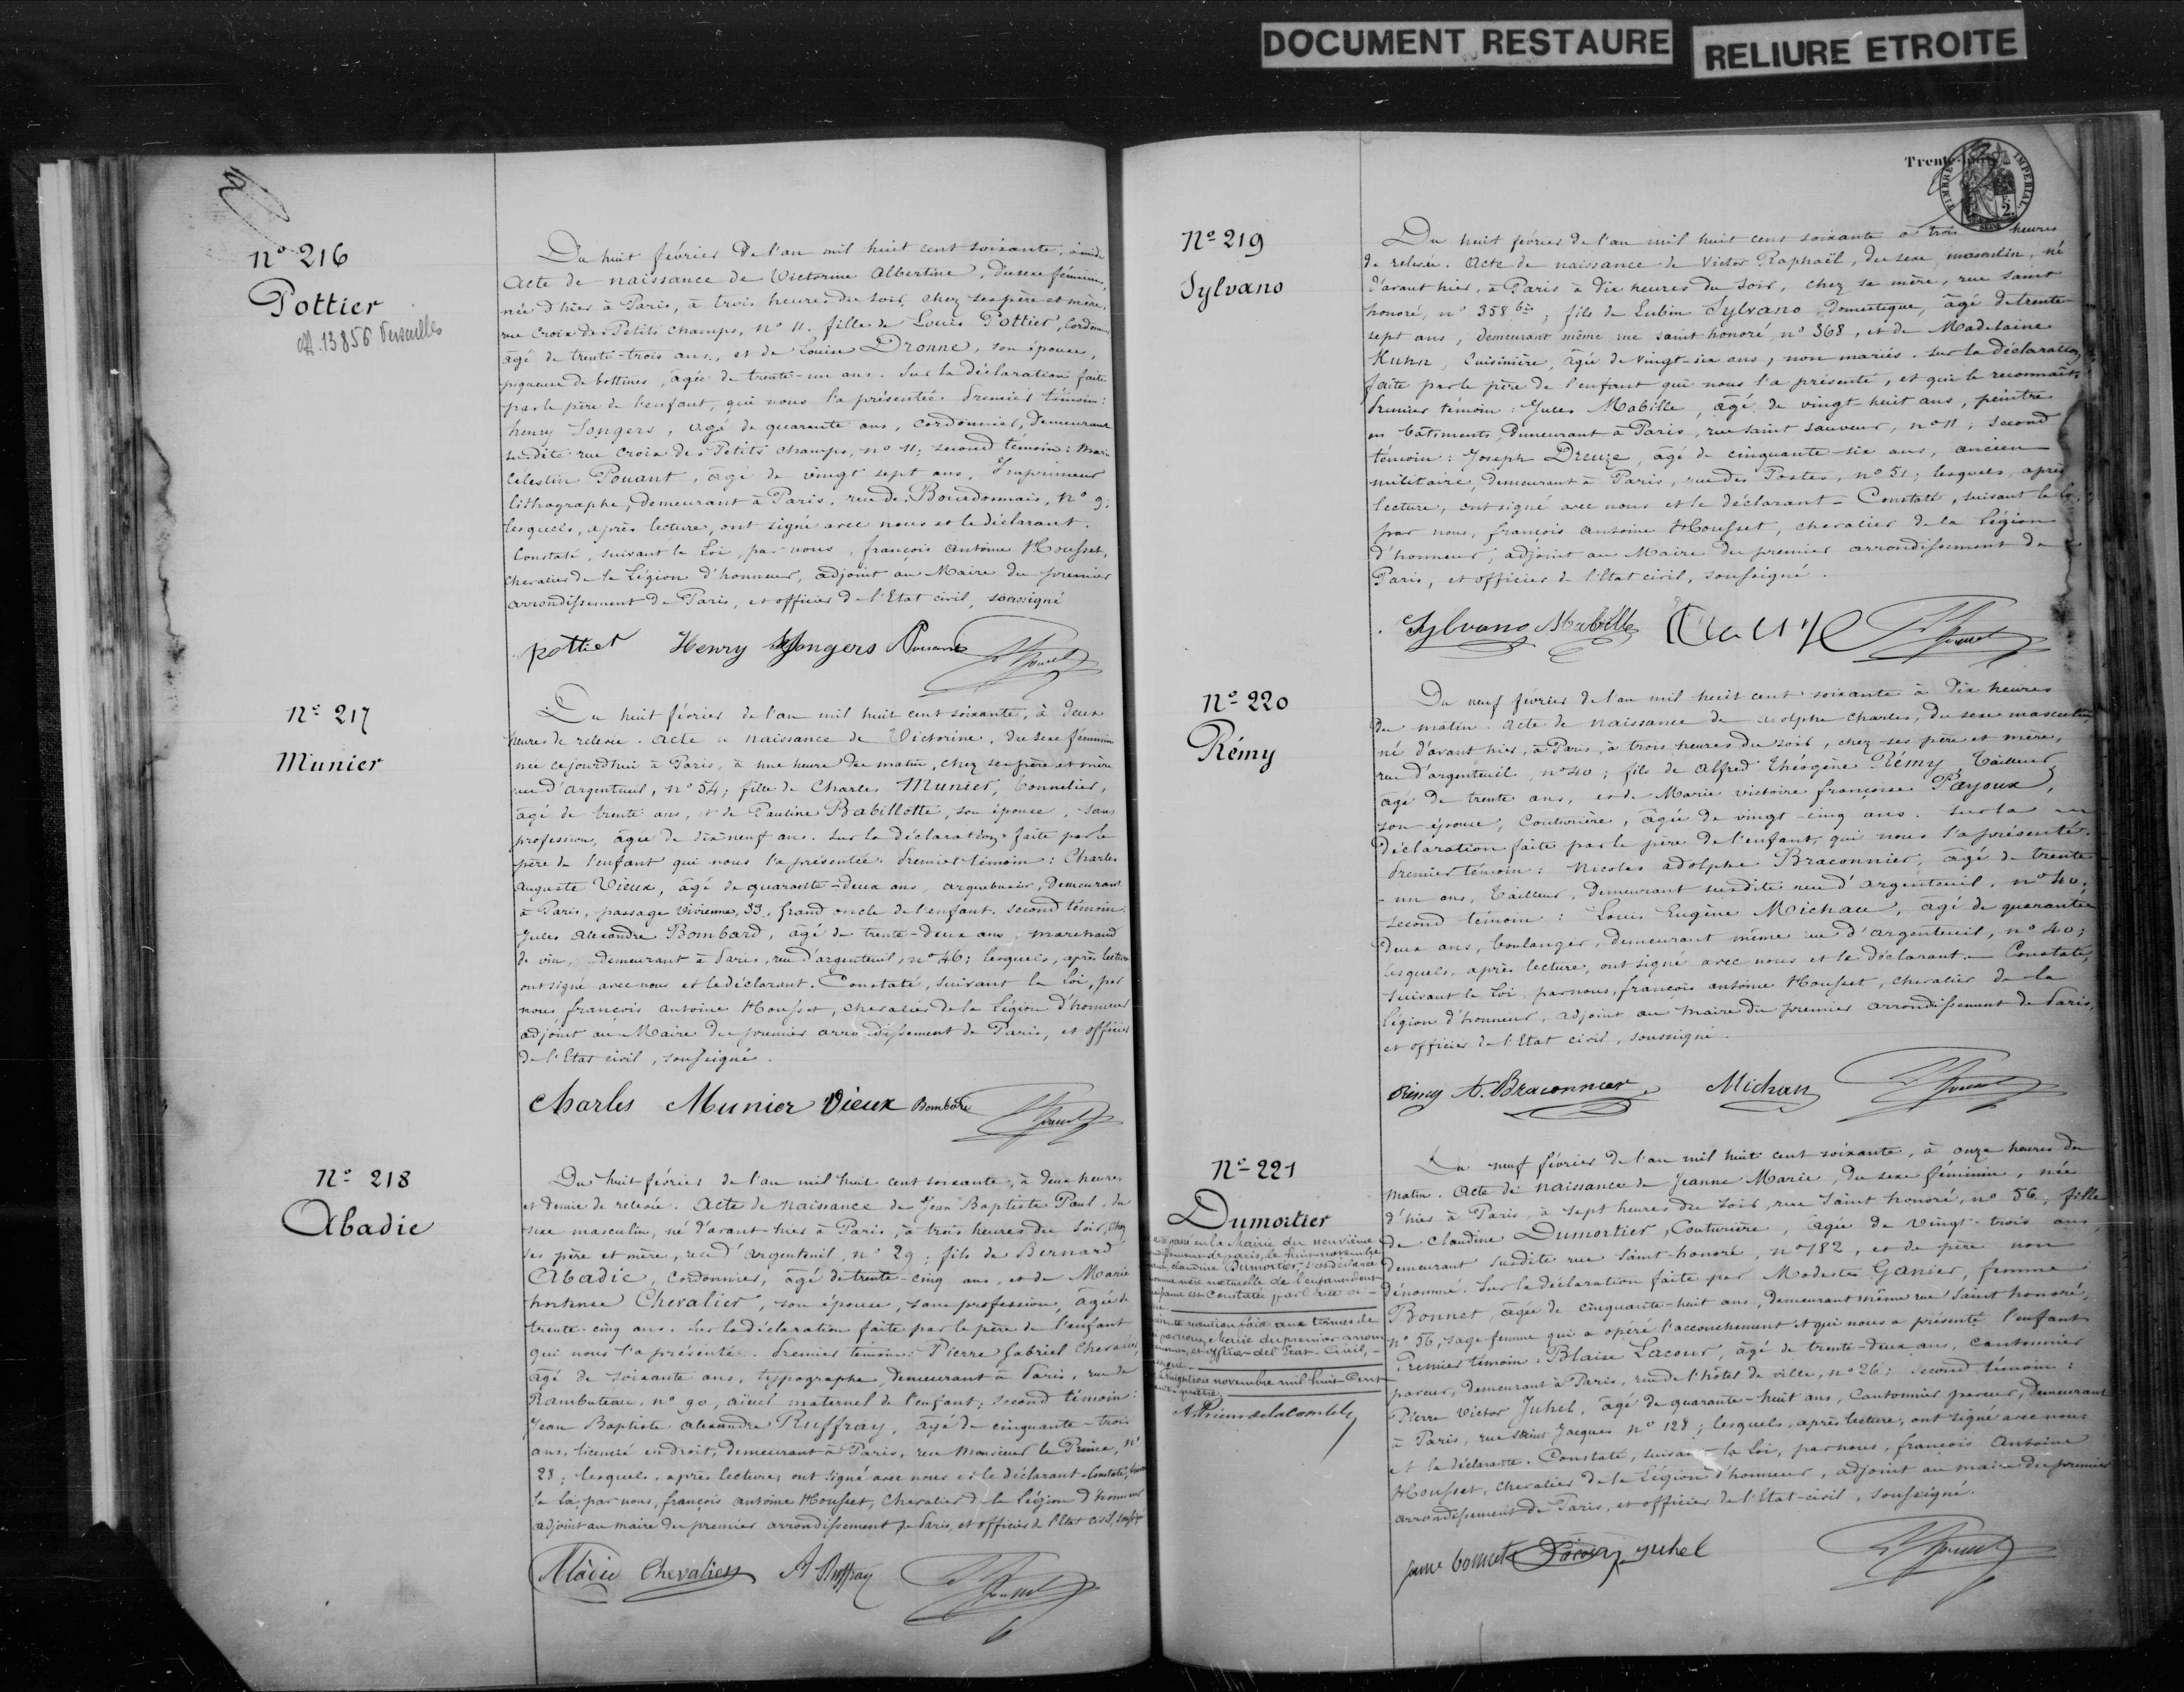 DOCUMENT RESTAURE
RELIURE ETROITE
Nº 216
Pottier
13856 Versailles
Du huit février de l'an mil huit cent soixante, à midi
Acte de naissance de Victorine Albertine, du sexe féminin,
née d'hier à Paris, à trois heures du soir, chez ses père et mère,
rue Croix des Petits champs, nº 11. fille de Louis Pottier, Cordonnier
âgé de trente-trois ans, et de Louise Dronne, son épouse,
piqueuse de bottines, âgée de trente-un ans. Sur la déclaration faite
par le père de l'enfant, qui nous l'a présentée. Premier témoin:
henry Songers, âgé de quarante ans, cordonnier, demeurant
susdite rue Croix des Petits champs, nº 11; second témoin: Marie
Célestin Pouant, âgé de vingt sept ans, Imprimeur
lithographe, demeurant à Paris, rue des Bourdonnais, nº 9;
lesquels, après lecture, ont signé avec nous et le déclarant.
Constaté, suivant la Loi, par nous, françois Antoine Housset,
Chevalier de la Légion d'honneur, adjoint au Maire du premier
arrondissement de Paris, et officier de l'Etat civil, soussigné
pottier Henry Songers Pouant
Nº 217
Munier
Du huit février de l'an mil huit cent soixante, à deux
heures de relevée. Acte de naissance de Victorine, du sexe féminin
née cejourd'hui à Paris, à une heure du matin, chez ses père et mère
rue d'argenteuil, nº 54; fille de Charles Munier, bonnelier,
âgé de trente ans, et de Pauline Babillotte, son épouse, sans
profession, âgée de dix-neuf ans. Sur la déclaration faite par le
père de l'enfant qui nous l'a présentée. Premier témoin: Charles
Auguste Vieux, âgé de quarante-deux ans, arquebusier, demeurant
à Paris, passage Vivienne, 33, grand oncle de l'enfant. second témoin
Jules Alexandre Bombard, âgé de trente-deux ans, marchand
de vin, demeurant à Paris, rue d'argenteuil, nº 46; lesquels, après lecture
ont signé avec nous et le déclarant. Constaté, suivant la Loi, par
nous, françois antoine Housset, chevalier de la Légion d'honneur
adjoint au Maire du premier arrondissement de Paris, et officier
de l'Etat civil, soussigné.
Charles Munier Vieux Bombard
Nº 218
Abadie
Du huit février de l'an mil huit cent soixante, à deux heures
et demie de relevée. Acte de naissance de Jean Baptiste Paul, du
sexe masculin, né d'avant-hier à Paris, à trois heures du soir, chez
ses père et mère, rue d'argenteuil, nº 29; fils de Bernard
Abadie, cordonnier, âgé de trente-cinq ans, et de Marie
hortense Chevalier, son épouse, sans profession, âgée de
trente-cinq ans. Sur la déclaration faite par le père de l'enfant
qui nous l'a présenté. Premier témoin: Pierre Gabriel Chevalier,
âgé de soixante ans, typographe, demeurant à Paris, rue de
Rambuteau, nº 90, aïeul maternel de l'enfant; second témoin:
Jean Baptiste alexandre Ruffray, âgé de cinquante-trois
ans, licencié en droit, demeurant à Paris, rue Monsieur le Prince, nº
28; lesquels, après lecture, ont signé avec nous et le déclarant. Constaté, suivant
la loi, par nous, françois antoine Housset, Chevalier de la légion d'honneur
adjoint au maire du premier arrondissement de Paris, et officier de l'Etat civil, soussigné
Abadie Chevalier Ruffray
Trente-huit
TIMBRE IMPERIAL
2
SEINE
Nº 219
Sylvano
Du huit février de l'an mil huit cent soixante à trois heures
de relevée. Acte de naissance de Victor Raphaël, du sexe masculin, né
d'avant hier, à Paris à dix heures du soir, chez sa mère, rue saint
honoré, nº 358 bis; fils de Lubin Sylvano, Domestique, âgé de trente-
sept ans, demeurant même rue saint honoré, nº 368, et de Madelaine
Kuhn, Cuisinière, âgée de vingt-six ans, non mariés. Sur la déclaration
faite par le père de l'enfant qui nous l'a présenté, et qui le reconnaît.
Premier témoin: Jules Mabille, âgé de vingt-huit ans, peintre
en bâtiments, demeurant à Paris, rue saint sauveur, nº 11; second
témoin: Joseph Dreuze, âgé de cinquante-six ans, ancien
militaire, demeurant à Paris, rue des Postes, nº 51; lesquels, après
lecture, ont signé avec nous et le déclarant. Constaté, suivant la loi,
par nous, françois antoine Housset, chevalier de la Légion
d'honneur, adjoint au Maire du premier arrondissement de
Paris, et officier de l'Etat civil, soussigné.
Sylvano Mabille
Nº 220
Rémy
Du neuf février de l'an mil huit cent soixante à dix heures
du matin. Acte de naissance de adolphe charles, du sexe masculin
né d'avant hier, à Paris, à trois heures du soir, chez ses père et mère,
rue d'argenteuil, nº 40; fils de Alfred Théogène Rémy, Tailleur,
âgé de trente ans, et de Marie victoire françoise Payoux,
son épouse, Couturière, âgée de vingt-cinq ans. Sur la
déclaration faite par le père de l'enfant, qui nous l'a présenté.
Premier témoin: Nicolas adolphe Braconnier, âgé de trente
-un ans, Tailleur, demeurant susdite rue d'argenteuil, nº 40;
second témoin: Louis Eugène Michau, âgé de quarante
deux ans, boulanger, demeurant même rue d'argenteuil, nº 40;
lesquels, après lecture, ont signé avec nous et le déclarant. Constaté,
suivant la Loi, par nous, françois antoine Housset, chevalier de la
légion d'honneur, adjoint au maire du premier arrondissement de Paris,
et officier de l'Etat civil, soussigné.
Rémy A. Braconnier Michau
Nº 221
Dumortier
passé en la Mairie du neuvième
de Paris, le huit novembre
claudine Dumortier s'est déclarée
mère naturelle de l'enfant dont
est constatée par l'acte ci-
mention faite aux termes de
par nous, Maire du premier
et officier de l'Etat-Civil,
vingt trois novembre mil huit cent
quatre
Du neuf février de l'an mil huit cent soixante, à onze heures du
matin. Acte de naissance de Jeanne Marie, du sexe féminin, née
d'hier à Paris, à sept heures du soir, rue Saint honoré, nº 56; fille
de Claudine Dumortier, Couturière, âgée de vingt-trois ans,
demeurant susdite rue Saint-honoré, nº 182, et de père non
dénommé. Sur la déclaration faite par Modeste Ganier, femme
Bonnet, âgée de cinquante-huit ans, demeurant même rue Saint honoré,
nº 56, sage femme qui a opéré l'accouchement et qui nous a présenté l'enfant
Premier témoin: Blaise Lacour, âgé de trente-deux ans, cantonnier
paveur, demeurant à Paris, rue de l'hôtel de ville, nº 26; second témoin:
Pierre Victor Juhel, âgé de quarante-huit ans, Cantonnier paveur, demeurant
à Paris, rue Saint Jacques nº 128; lesquels, après lecture, ont signé avec nous
et la déclarante. Constaté, suivant la Loi, par nous, françois Antoine
Housset, chevalier de la Légion d'honneur, adjoint au maire du premier
arrondissement de Paris, et officier de l'Etat-civil, soussigné.
fame bonnet Lacour juhel